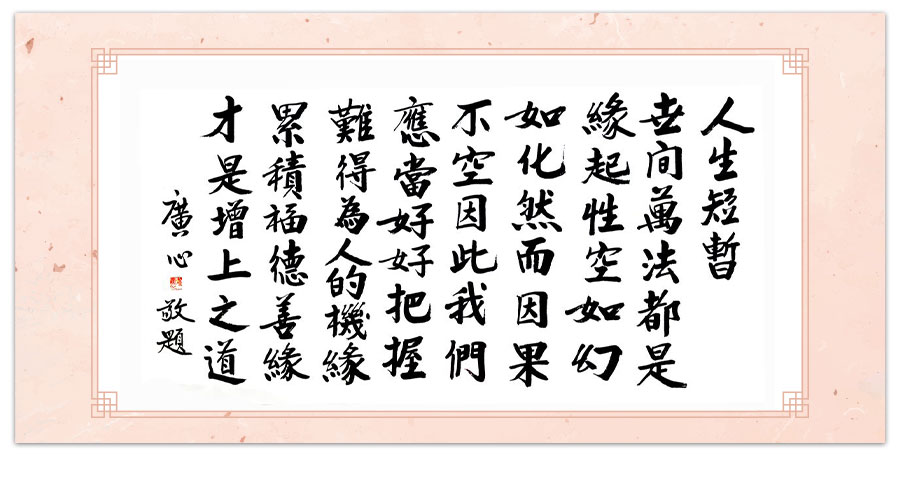 人生短暫
世間萬法都是
緣起性空如幻
如化然而因果
不空因此我們
應當好好把握
難得為人的機緣
累積福德善緣
才是增上之道
廣心敬題